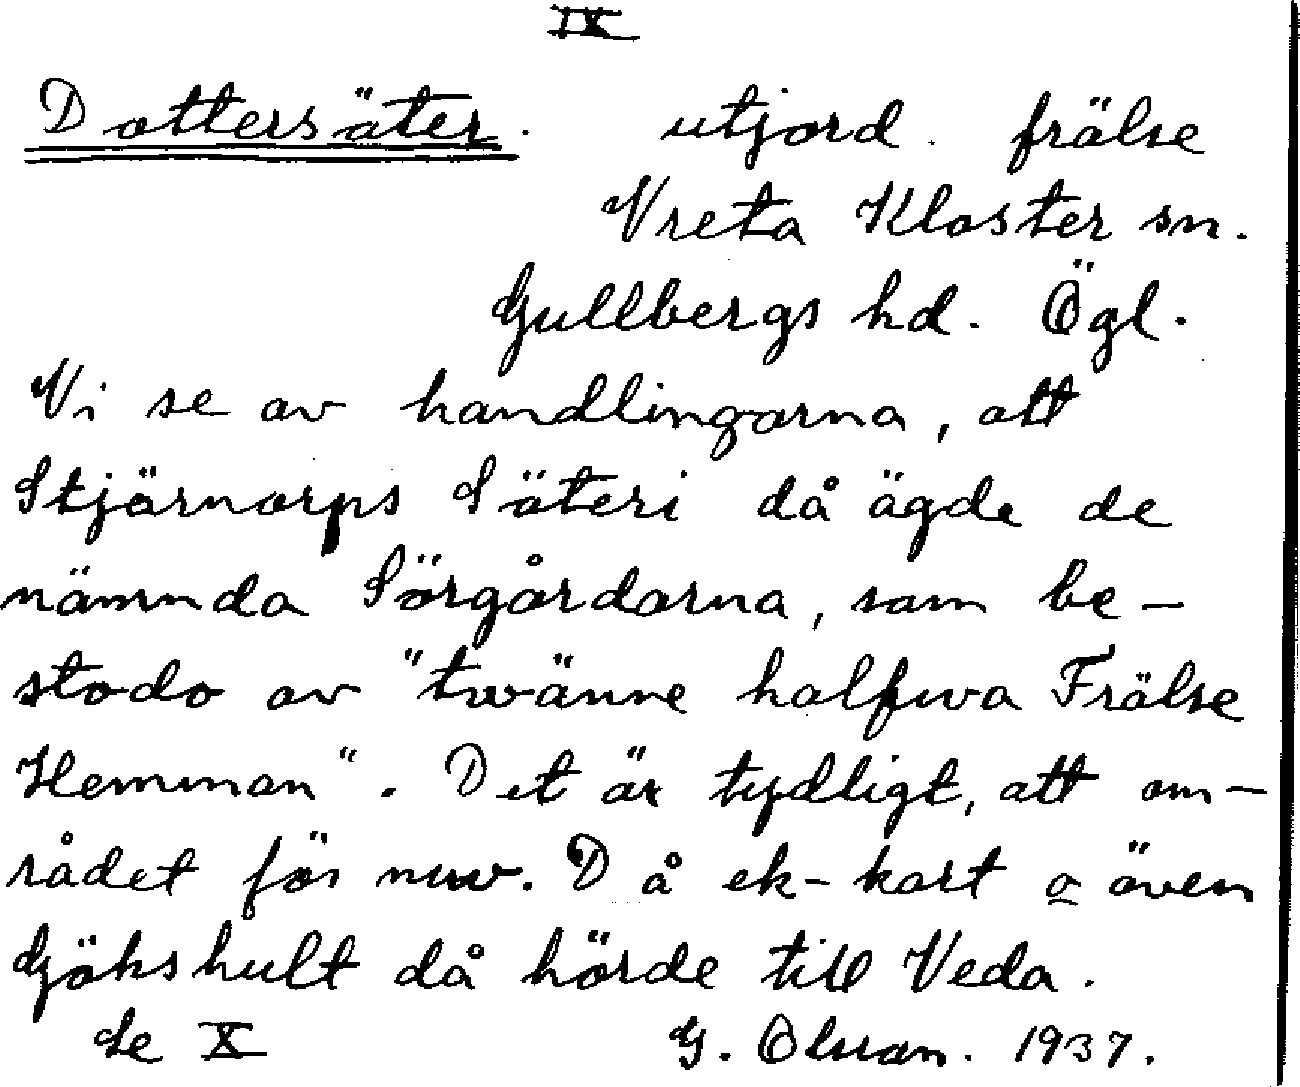 IX
Dottersäter. utjord. frälse
Vreta Kloster sn.
Gullbergs hd. Ögl.
Vi se av handlingarna, att
Stjärnorps Säteri då ägde de
nämnda Sörgårdarna, som be-
stodo av "twänne halfwa Frälse
Hemman". Det är tydligt, att om-
rådet för nuv. D å ek-kart o även
Gökshult då hörde till Veda.
Se X G. Olsson. 1937.